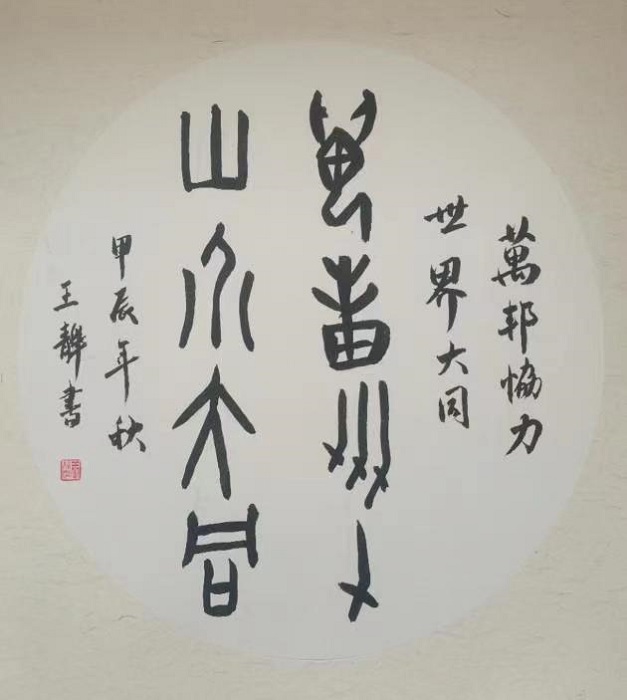 萬邦恊力
世界大同
萬邦劦力
世介大同
甲辰年秋
王書